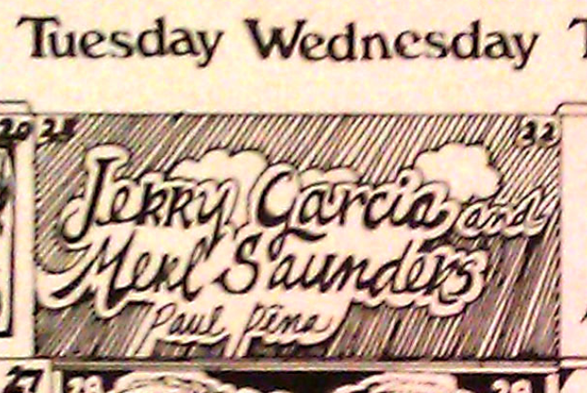 Tuesday Wednesday
20 21 22
Jerry Garcia and
Merl Saunders
Paul Pena
27 28 29